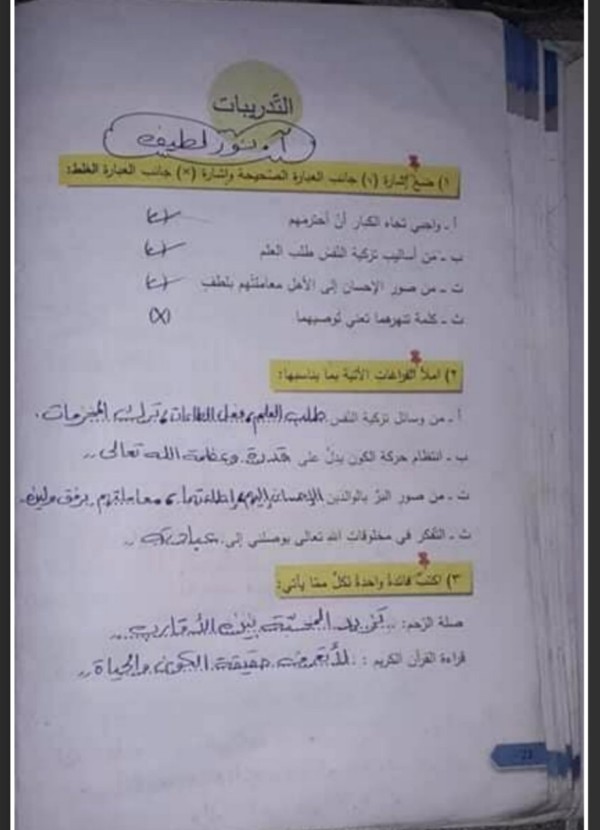 التدريبات
آ. نور لطيف
١) ضع إشارة (√) جانب العبارة الصحيحة وإشارة (×) جانب العبارة الغلط:
أ - واجبي تجاه الكبار أن أحترمهم (√)
ب - من أساليب تزكية النفس طلب العلم (√)
ت - من صور الإحسان إلى الأهل معاملتهم بلطف (√)
ث - كلمة تنهرهما تعني توصيهما (X)
٢) املأ الفراغات الآتية بما يناسبها:
أ - من وسائل تزكية النفس طلب العلم، فعل الطاعات، ترك المحرمات.
ب - انتظام حركة الكون يدلّ على قدرة وعظمة الله تعالى..
ت - من صور البرّ بالوالدين الإحسان إليهم وإطاعتهما، معاملتهم برفق ولين.
ث - التفكر في مخلوقات الله تعالى يوصلني إلى عبادته..
٣) اكتب فائدة واحدة لكلّ ممّا يأتي:
صلة الرحم: ..تزيد المحبّة بين الأقارب..
قراءة القرآن الكريم: .لأتعرف حقيقة الكون والحياة..